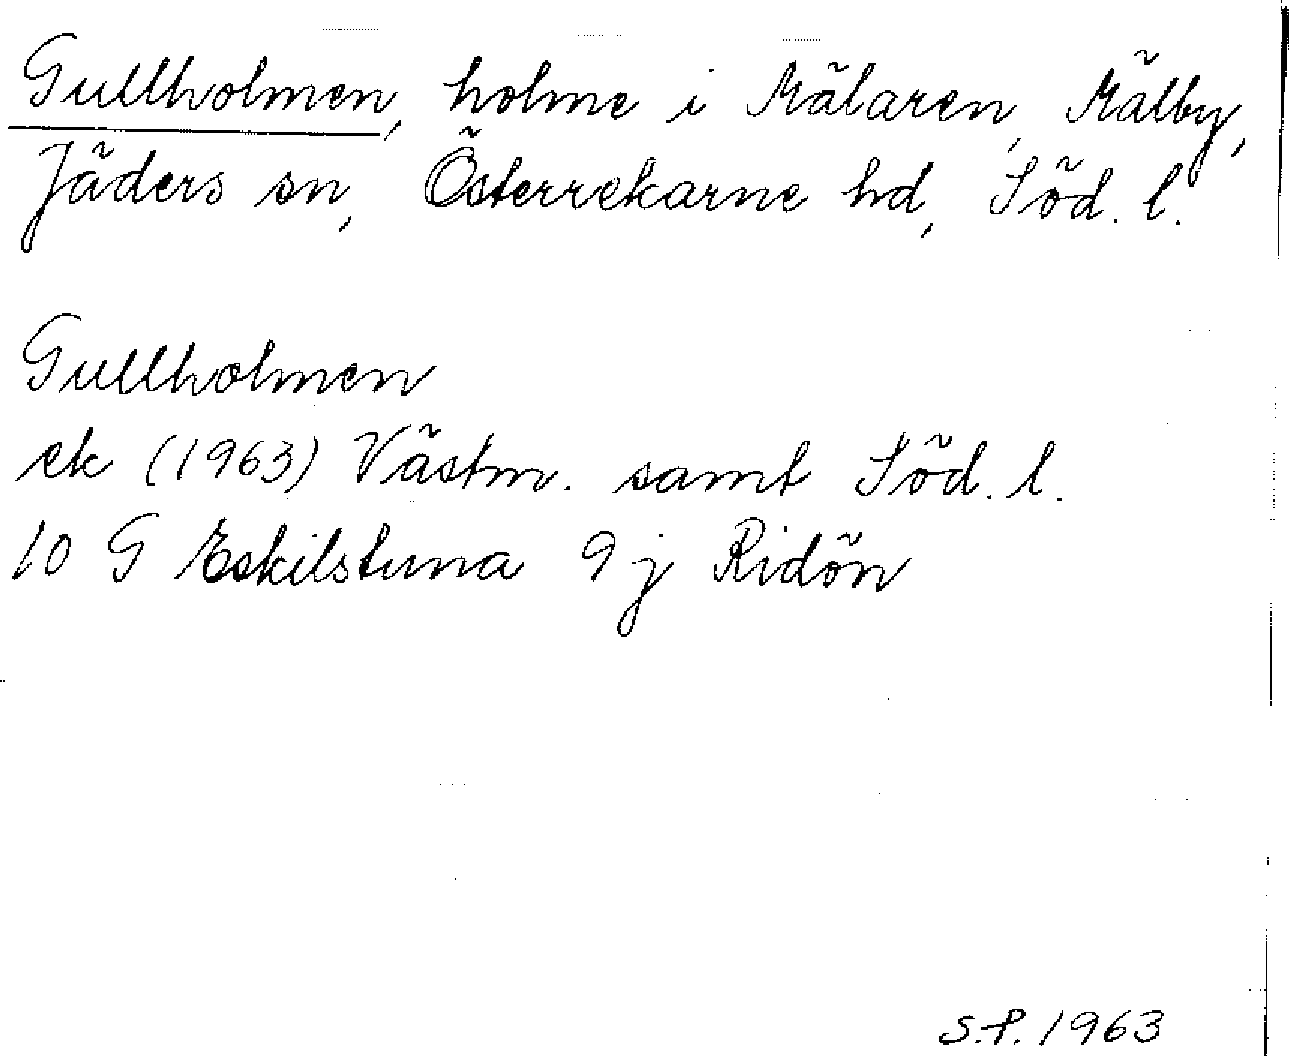 Gullholmen, holme i Mälaren, Mälby,
Jäders sn, Österrekarne hd, Söd. l.
Gullholmen
ek (1963) Västm. samt Söd. l.
10 G Eskilstuna 9 j Ridön
S.P. 1963